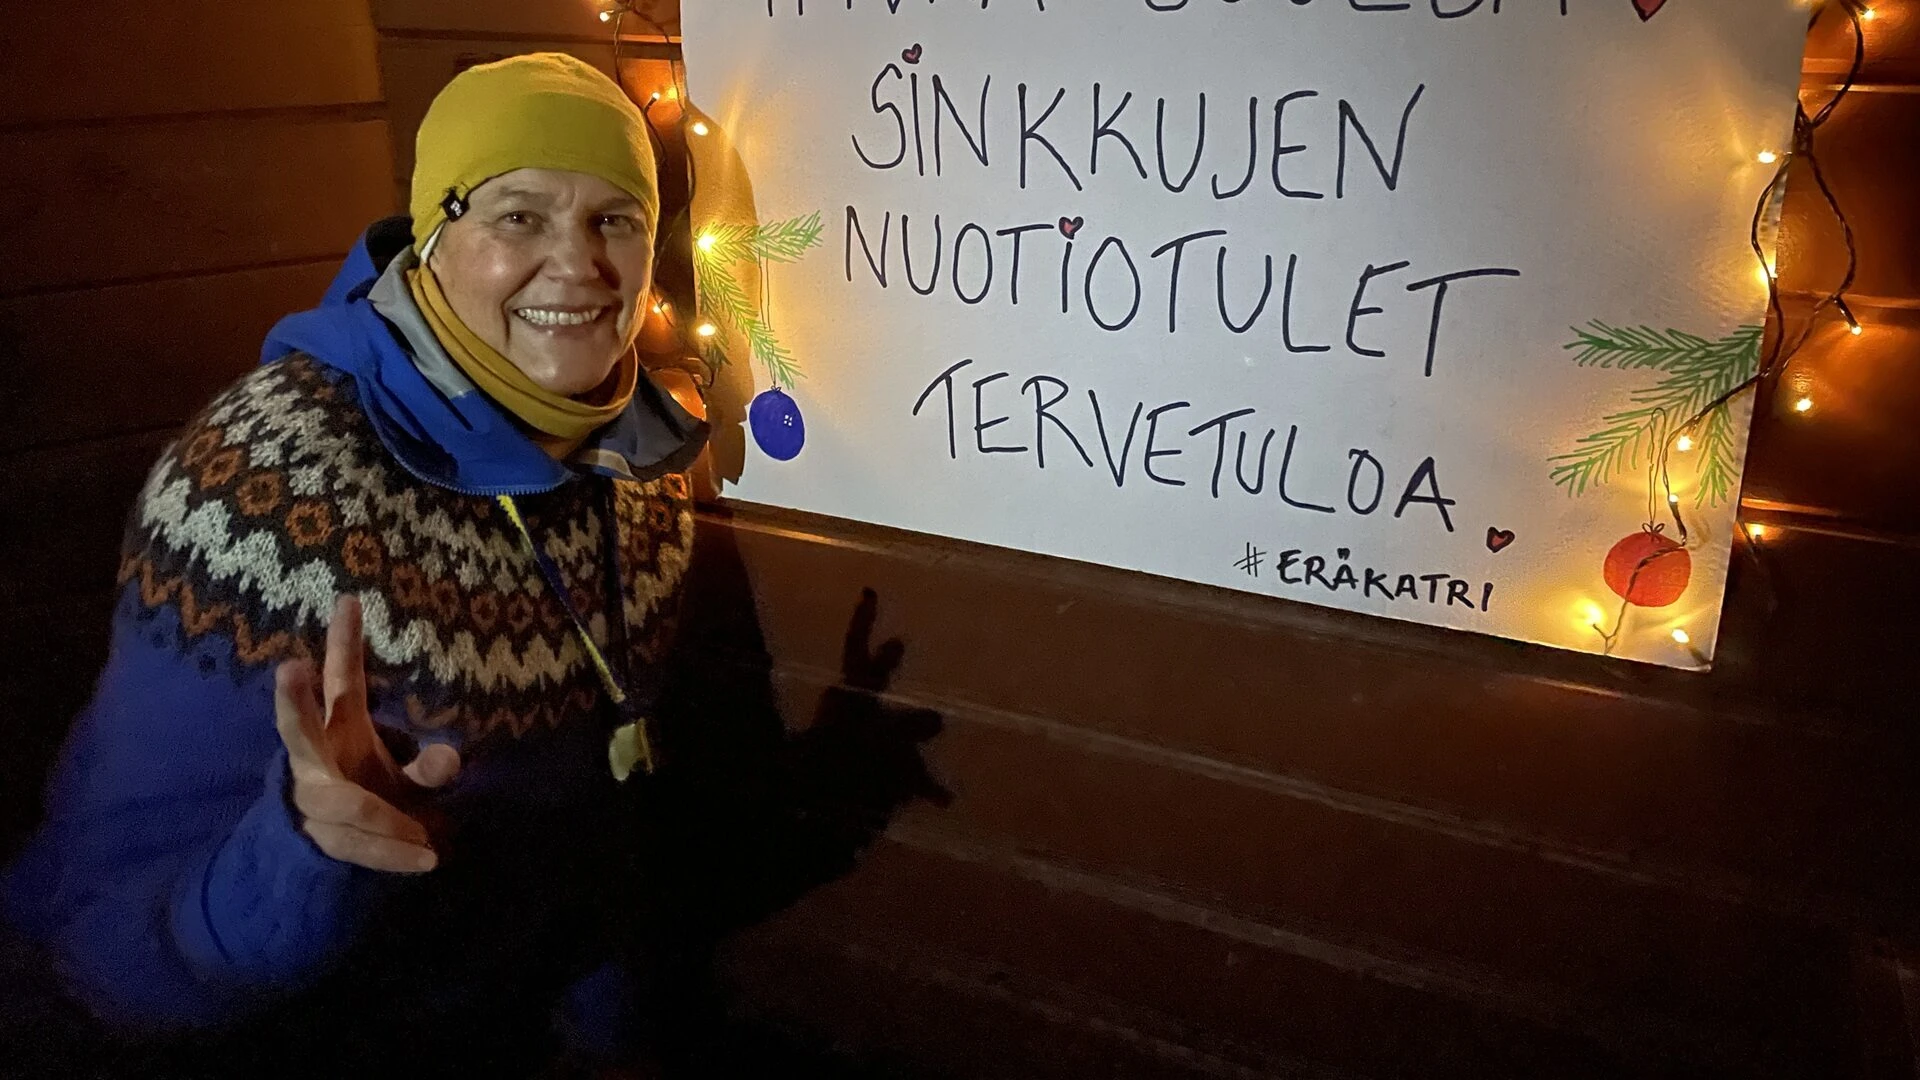 SINKKUJEN
NUOTIOTULET
TERVETULOA
#ERÄKATRI